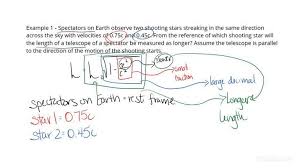 Example 1 - Spectators on Earth observe two shooting stars streaking in the same direction
across the sky with velocities of 0.75c and 0.45c. From the reference of which shooting star will
the length of a telescope of a spectator be measured as longer? Assume the telescope is parallel
to the direction of the motion of the shooting stars.
small
fraction
large decimal
spectators on Earth = rest frame
longest
length
star 1 = 0.75c
star 2 = 0.45c